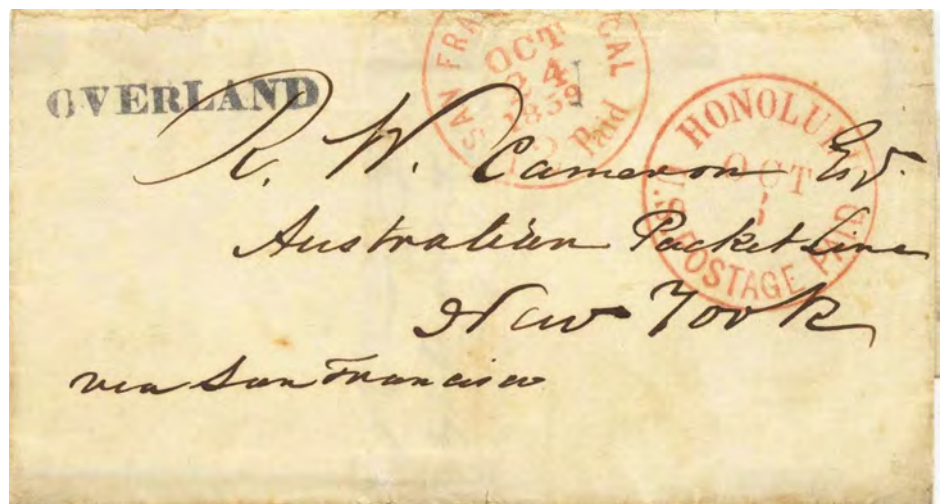 OVERLAND
SAN FRA CAL
OCT
24
1859
Paid
HONOLULU
OCT
1
U.S. POSTAGE PAID
R. W. Cameron Esq.
Australian Packet Line
New York
via San Francisco